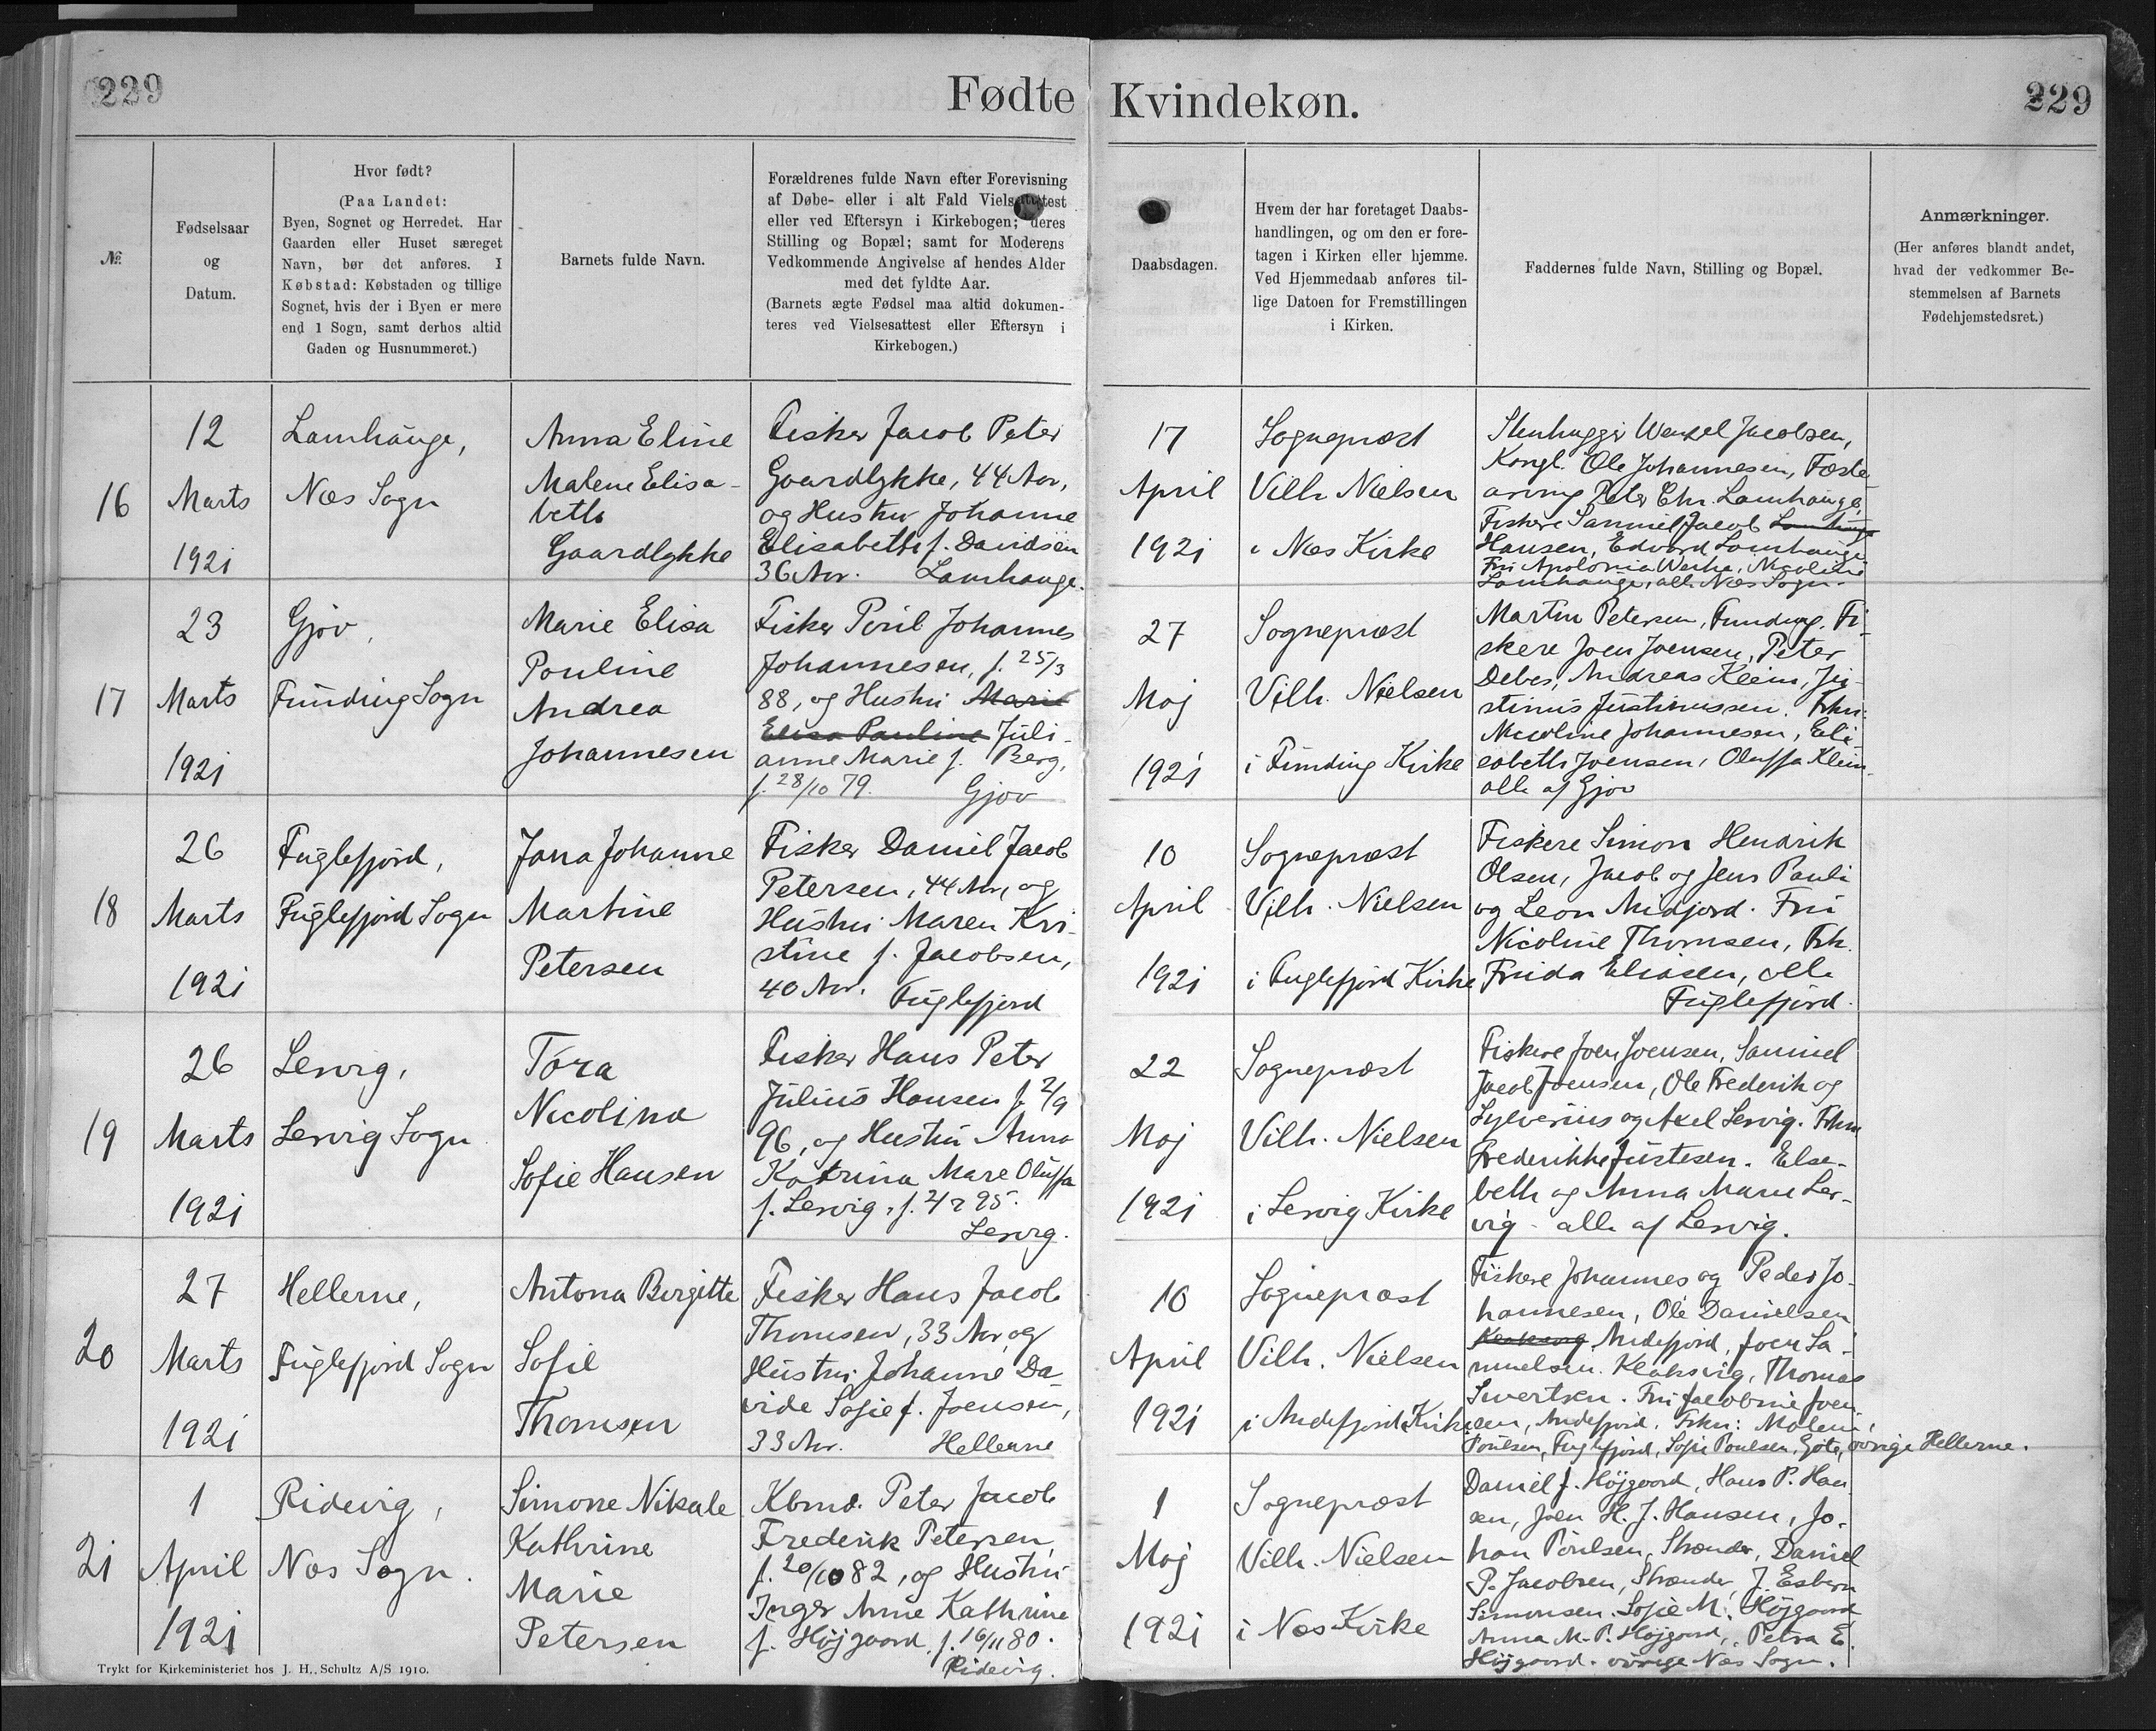 229
Fødte
Kvindekøn.
229
№
Fødselsaar
og
Datum.
Hvor født?
(Paa Landet:
Byen, Sognet og Herredet. Har
Gaarden eller Huset særeget
Navn, bør det anføres. I
Købstad: Købstaden og tillige
Sognet, hvis der i Byen er mere
end 1 Sogn, samt derhos altid
Gaden og Husnummeret.)
Barnets fulde Navn.
Forældrenes fulde Navn efter Forevisning
af Døbe- eller i alt Fald Vielsesattest
eller ved Eftersyn i Kirkebogen; deres
Stilling og Bopæl; samt for Moderens
Vedkommende Angivelse af hendes Alder
med det fyldte Aar.
(Barnets ægte Fødsel maa altid dokumen-
teres ved Vielsesattest eller Eftersyn i
Kirkebogen.)
Daabsdagen.
Hvem der har foretaget Daabs-
handlingen, og om den er fore-
tagen i Kirken eller hjemme.
Ved Hjemmedaab anføres til-
lige Datoen for Fremstillingen
i Kirken.
Faddernes fulde Navn, Stilling og Bopæl.
Anmærkninger.
(Her anføres blandt andet,
hvad der vedkommer Be-
stemmelsen af Barnets
Fødehjemstedsret.)
16
12
Marts
1921
Lamhauge,
Næs Sogn
Anna Eline
Malene Elisa-
beth
Gaardlykke
Fisker Jacob Peter
Gaardlykke, 44 Aar,
og Hustru Johanne
Elisabeth f. Davidsen
36 Aar. Lamhauge.
17
April
1921
Sognepræst
Vilh. Nielsen
i Næs Kirke
Stenhugger Wenzel Jacobsen,
Kongl. Ole Johannesen, Fæste
arving Peter Chr. Lamhauge,
Fiskere Samuel Jacob Lamhauge
Hansen, Edvard Lamhauge
Fru Apolonia Weihe, Nicoline
Lamhauge, alle Næs Sogn.
17
23
Marts
1921
Gjov,
Funding Sogn
Marie Elisa
Pouline
Andrea
Johannesen
Fisker Poul Johannes
Johannesen, f. 25/3
88, og Hustru Marie
Elisa Pauline Juli-
anne Marie f. Berg,
f. 28/10 79. Gjov
27
Maj
1921
Sognepræst
Vilh. Nielsen
i Funding Kirke
Martin Petersen, Funding. Fi-
skere Joen Joensen, Peter
Debes, Andreas Klein, Ju-
stinus Justinussen. Frkn:
Nicoline Johannesen, Eli-
sabeth Joensen, Oluffa Klein
alle af Gjov
18
26
Marts
1921
Fuglefjord,
Fuglefjord Sogn
Jana Johanne
Martine
Petersen
Fisker Daniel Jacob
Petersen, 44 Aar, og
Hustru Maren Kri-
stine f. Jacobsen,
40 Aar. Fuglefjord
10
April
1921
Sognepræst
Vilh. Nielsen
i Fuglefjord Kirke
Fiskere Simon Hendrik
Olsen, Jacob og Jens Pauli
og Leon Midjord. Fru
Nicoline Thomsen, Frk.
Frida Eliasen, alle
Fuglefjord.
19
26
Marts
1921
Lervig,
Lervig Sogn
Tora
Nicolina
Sofie Hansen
Fisker Hans Peter
Julius Hansen f. 2/9
96, og Hustru Anna
Katrina Mare Oluffa
f. Lervig, f. 95.
Lervig.
22
Maj
1921
Sognepræst
Vilh. Nielsen
i Lervig Kirke
Fiskere Joen Joensen, Samuel
Jacob Joensen, Ole Frederik og
Sylverius og Axel Lervig. Frkn
Frederikke Justesen. Else-
beth og Anna Marie Ler-
vig - alle af Lervig.
20
27
Marts
1921
Hellerne,
Fuglefjord Sogn
Antona Birgitte
Sofie
Thomsen
Fisker Hans Jacob
Thomsen, 33 Aar, og
Hustru Johanne Da-
vide Sofie f. Joensen,
33 Aar. Hellerne
10
April
1921
Sognepræst
Vilh. Nielsen
i Andefjord Kirke
Fiskere Johannes og Peder Jo-
hannesen, Ole Danielsen
Klaksvig Andefjord, Joen Sa-
muelsen. Klaksvig, Thomas
Sivertsen. Fru Jacobine Joen
sen, Andefjord. Frkn: Malene
Poulsen, Fuglefjord, Sofie Poulsen, Gøte, øvrige Hellerne.
21
1
April
1921
Ridevig,
Næs Sogn.
Simone Nikale
Kathrine
Marie
Petersen
Kbmd. Peter Jacob
Frederik Petersen,
f. 20/10 82, og Hustru
Inger Anne Kathrine
f. Højgaard f. 16/11 80.
Ridevig.
1
Maj
1921
Sognepræst
Vilh. Nielsen
i Næs Kirke
Daniel J. Højgaard, Hans P. Han
sen, Joen H. J. Hansen, Jo-
han Poulsen, Strænder, Daniel
P. Jacobsen, Strænder, J. Esbern
Simonsen. Sofie M. Højgaard
Anna M. P. Højgaard, Petra E.
Højgaard. øvrige Næs Sogn.
Trykt for Kirkeministeriet hos J. H. Schultz A/S 1910.